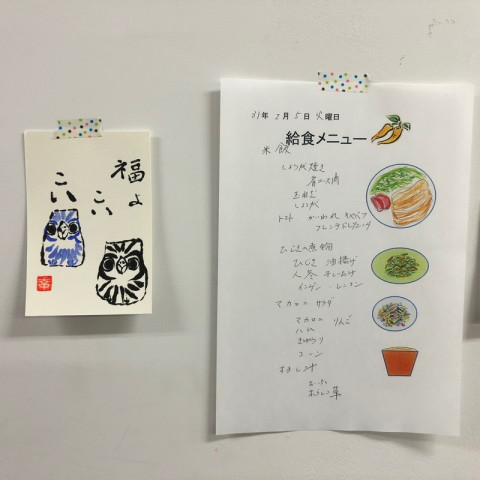 福よ
こい
こい
31年 2月 5日 火曜日
給食メニュー
米飯
しょうが焼き
肩ロース肉
玉ねぎ
しょうが
トマト かいわれ キャベツ
フレンチドレッシング
ひじきの煮物
ひじき 油揚げ
人参
インゲン
マカロニ サラダ
マカロニ りんご
ハム
きゅうり
コーン
すまし汁
ほうれん草